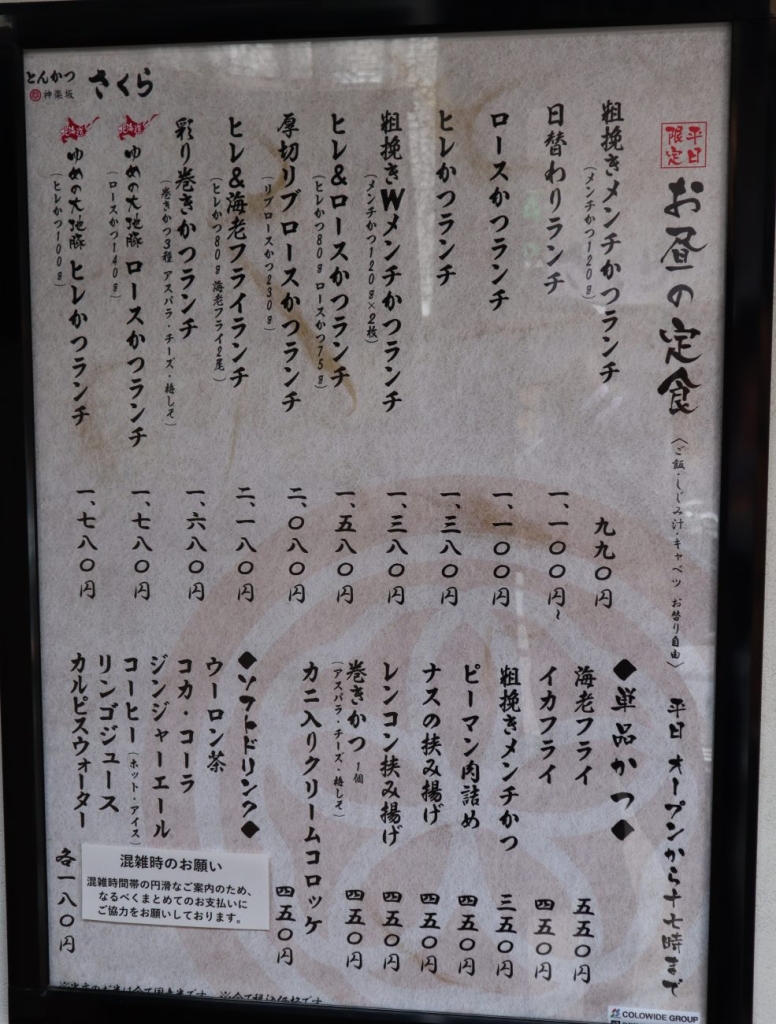 とんかつ
神楽坂
さくら
平日
限定
お昼の定食
〈ご飯・しじみ汁・キャベツ お替り自由〉
平日 オープンから十七時まで
粗挽きメンチかつランチ
(メンチかつ120g)
九九〇円
日替わりランチ
一、一〇〇円~
ロースかつランチ
一、一〇〇円
ヒレかつランチ
一、三八〇円
粗挽きWメンチかつランチ
(メンチかつ120g×2枚)
一、三八〇円
ヒレ&ロースかつランチ
(ヒレかつ80g ロースかつ75g)
一、五八〇円
厚切リブロースかつランチ
(リブロースかつ230g)
二、〇八〇円
ヒレ&海老フライランチ
(ヒレかつ80g 海老フライ2尾)
二、一八〇円
彩り巻きかつランチ
(巻きかつ3種 アスパラ・チーズ・梅しそ)
一、六八〇円
北海道
ゆめの大地豚 ロースかつランチ
(ロースかつ140g)
一、七八〇円
北海道
ゆめの大地豚 ヒレかつランチ
(ヒレかつ100g)
一、七八〇円
◆単品かつ◆
海老フライ
五五〇円
イカフライ
四五〇円
粗挽きメンチかつ
三五〇円
ピーマン肉詰め
四五〇円
ナスの挟み揚げ
四五〇円
レンコン挟み揚げ
四五〇円
巻きかつ 1個
(アスパラ・チーズ・梅しそ)
四五〇円
カニ入りクリームコロッケ
四五〇円
◆ソフトドリンク◆
ウーロン茶
コカ・コーラ
ジンジャーエール
コーヒー(ホット・アイス)
リンゴジュース
カルピスウォーター
各一八〇円
混雑時のお願い
混雑時間帯の円滑なご案内のため、
なるべくまとめてのお支払いに
ご協力をお願いしております。
COLOWIDE GROUP